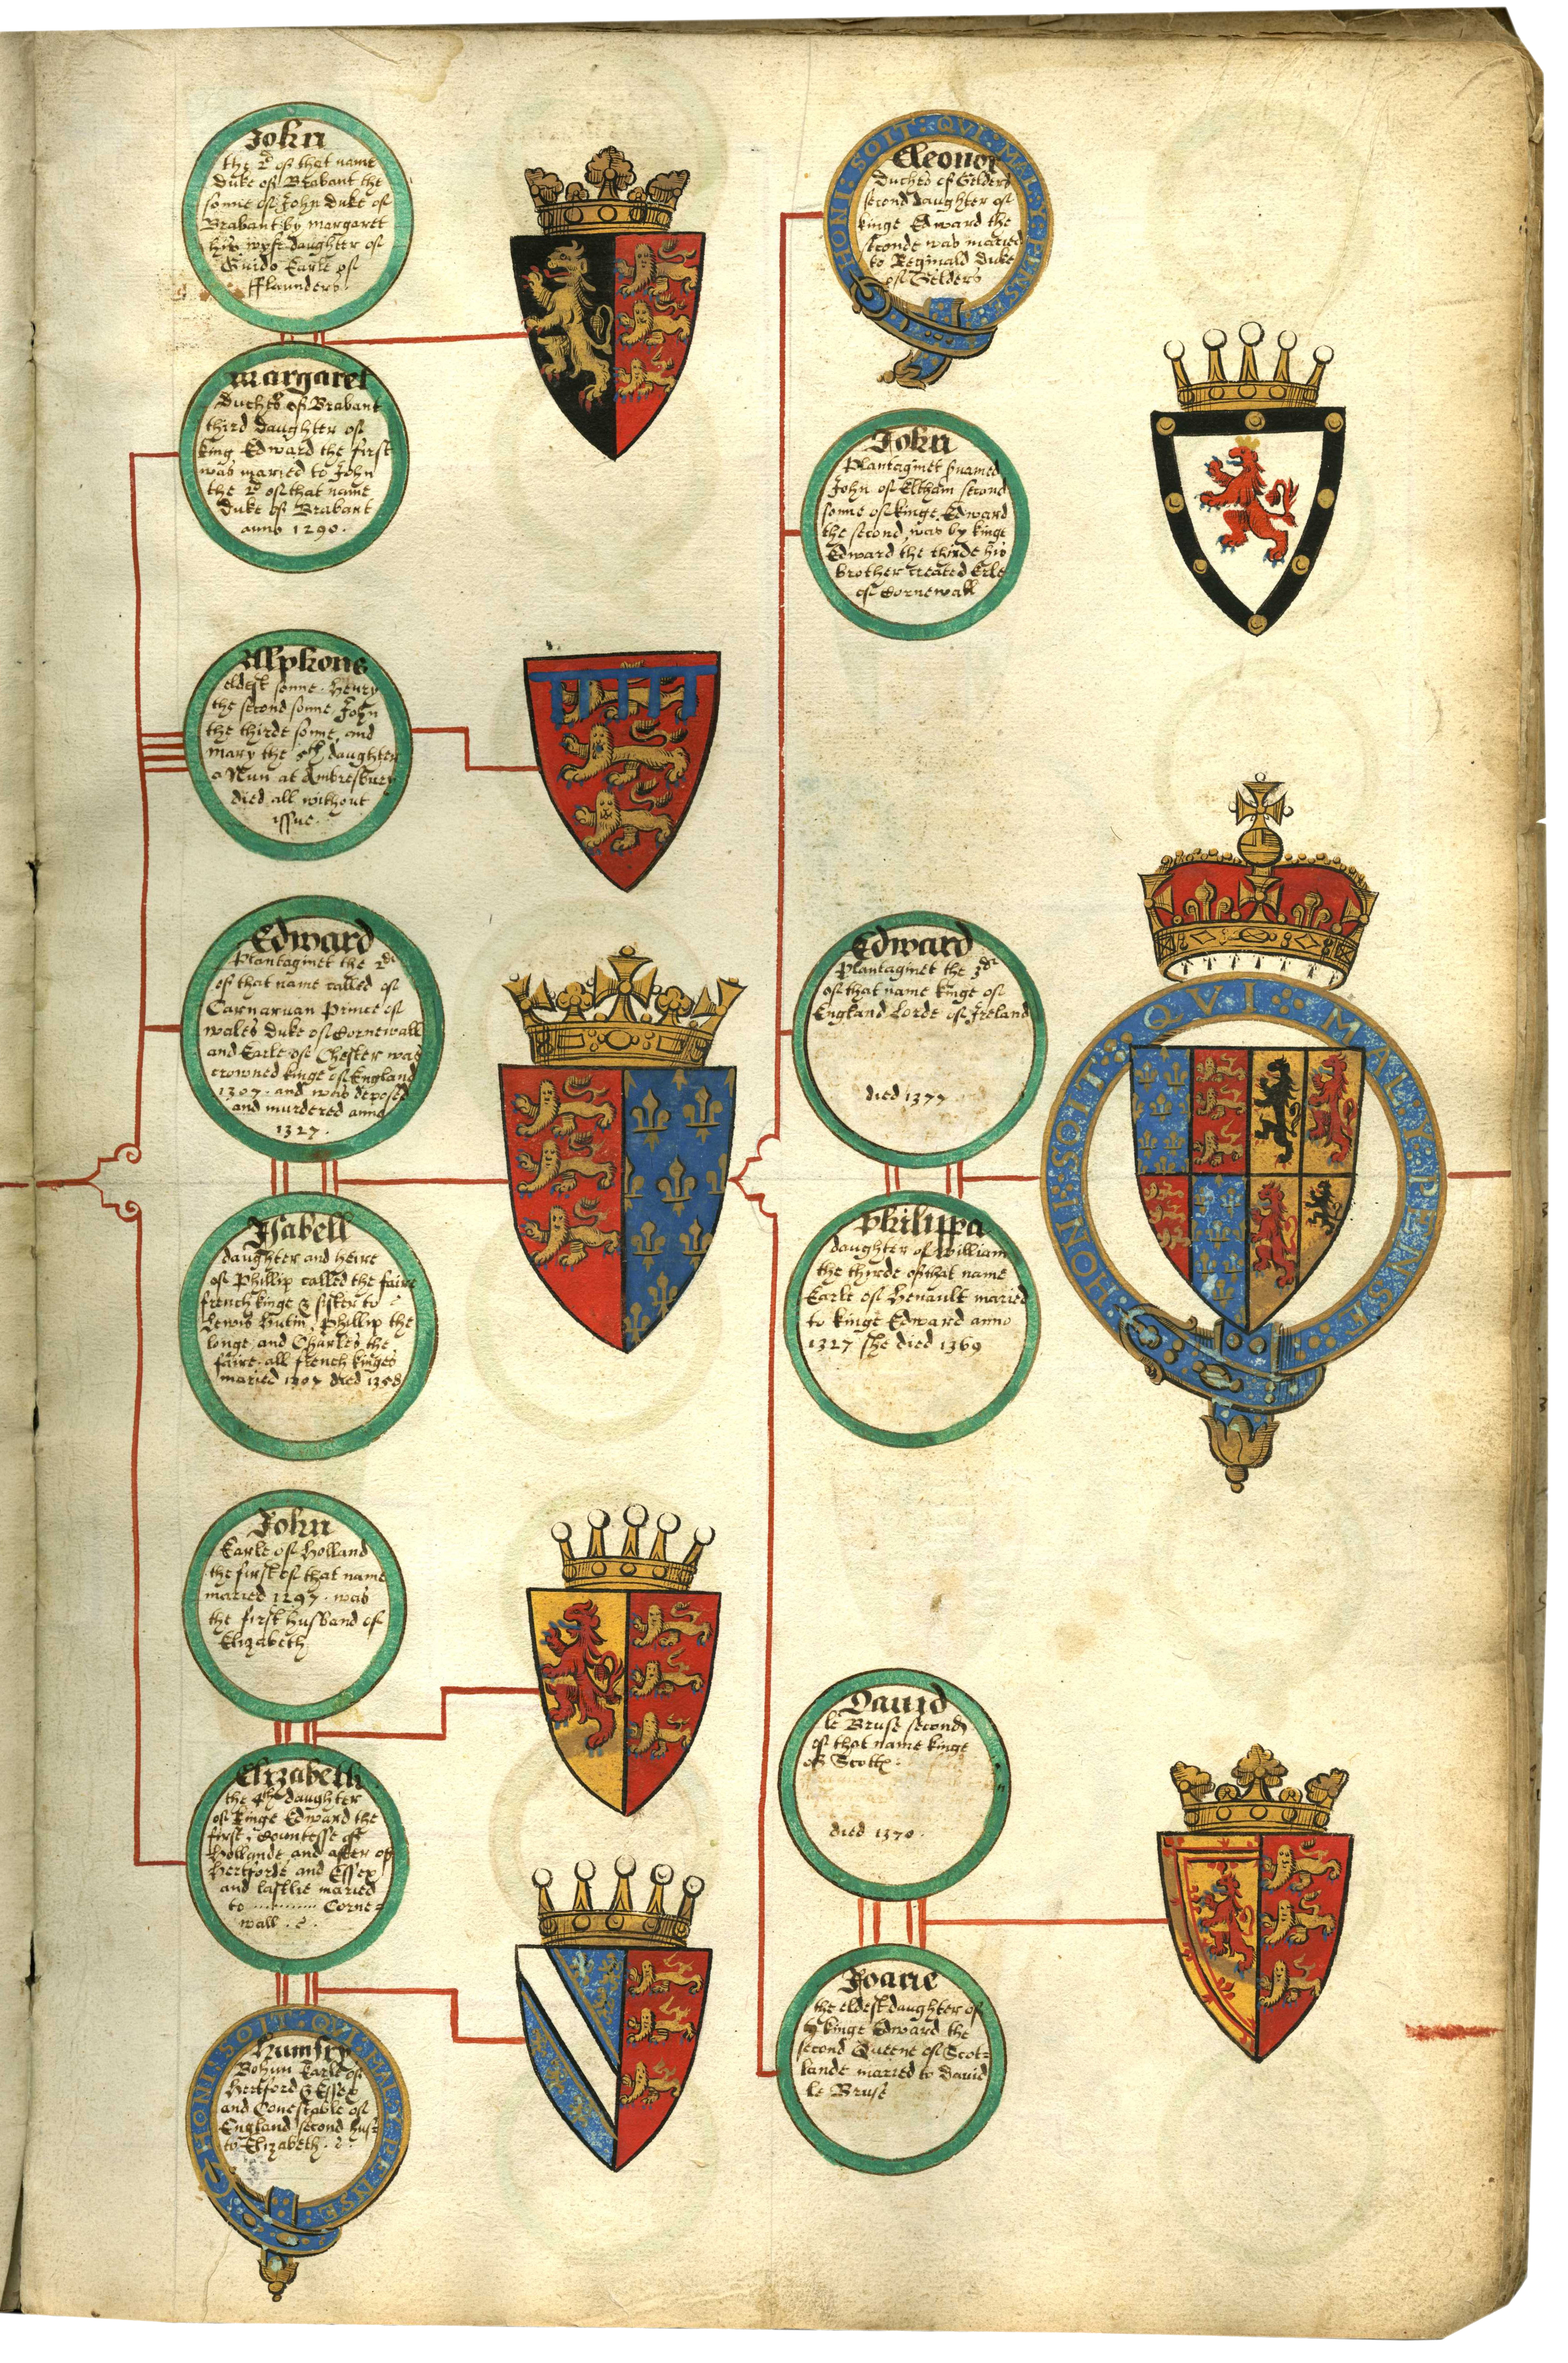 John
the 2d of that name
Duke of Brabant the
sonne of John duke of
Brabant by margaret
his wyfe daughter of
Guido Earle of
fflaunders.
margaret
Duches of Brabant
third daughter of
king Edward the first
was maried to John
the 2d of that name
Duke of Brabant
anno 1290.
Alphons
eldest sonne. Henry
the second sonne, John
the thirde sonne, and
mary the 5th daughter
a Nun at Ambresbury
died all without
issue.
Edward
Plantaginet the 2de
of that name called of
Carnaruan Prince of
wales Duke of Cornewall
and Earle of Chester was
crowned kinge of England
1307. and was deposed
and murdered anno
1327.
Isabell
daughter and heire
of Phillip called the faire
french kinge & sister to
Lewis Hutin, Phillip the
longe, and Charles the
faire. all french kinges
maried 1307 died 1358
John
Earle of Holland
the first of that name
maried 1297. was
the first husband of
Elizabeth
Elizabeth
the 4th daughter
of Kinge Edward the
first, Countesse of
Hollande and after of
Hertforde and Essex
and lastlie maried
to ............ Corne=
wall. &.
HONI: SOIT: QVI: MAL: Y: PENSE
Humfry
Bohun Earle of
Hertford & Essex
and Conestable of
England second hus=
to Elizabeth. &:
HONI: SOIT: QVI: MAL: Y: PENSE
Eleonor
Duches of Gelders
second daughter of
kinge Edward the
seconde was maried
to Reginald Duke
of Gelders
John
Plantaginet surnamed
John of Eltham second
sonne of kinge Edward
the second, was by kinge
Edward the thirde his
brother created Erle
of Cornewall
Edward
Plantaginet the 3de
of that name kinge of
England Lorde of Ireland
died 1377
HONI: SOIT: QVI: MAL: Y: PENSE
Philippa
daughter of William
the thirde of that name
Earle of Henault maried
to kinge Edward anno
1327 she died 1369
Dauid
le Bruse second
of that name kinge
of Scott:
died 1370.
Joane
the eldest daughter of
kinge Edward the
second Queene of Scot=
lande maried to Dauid
le Bruse